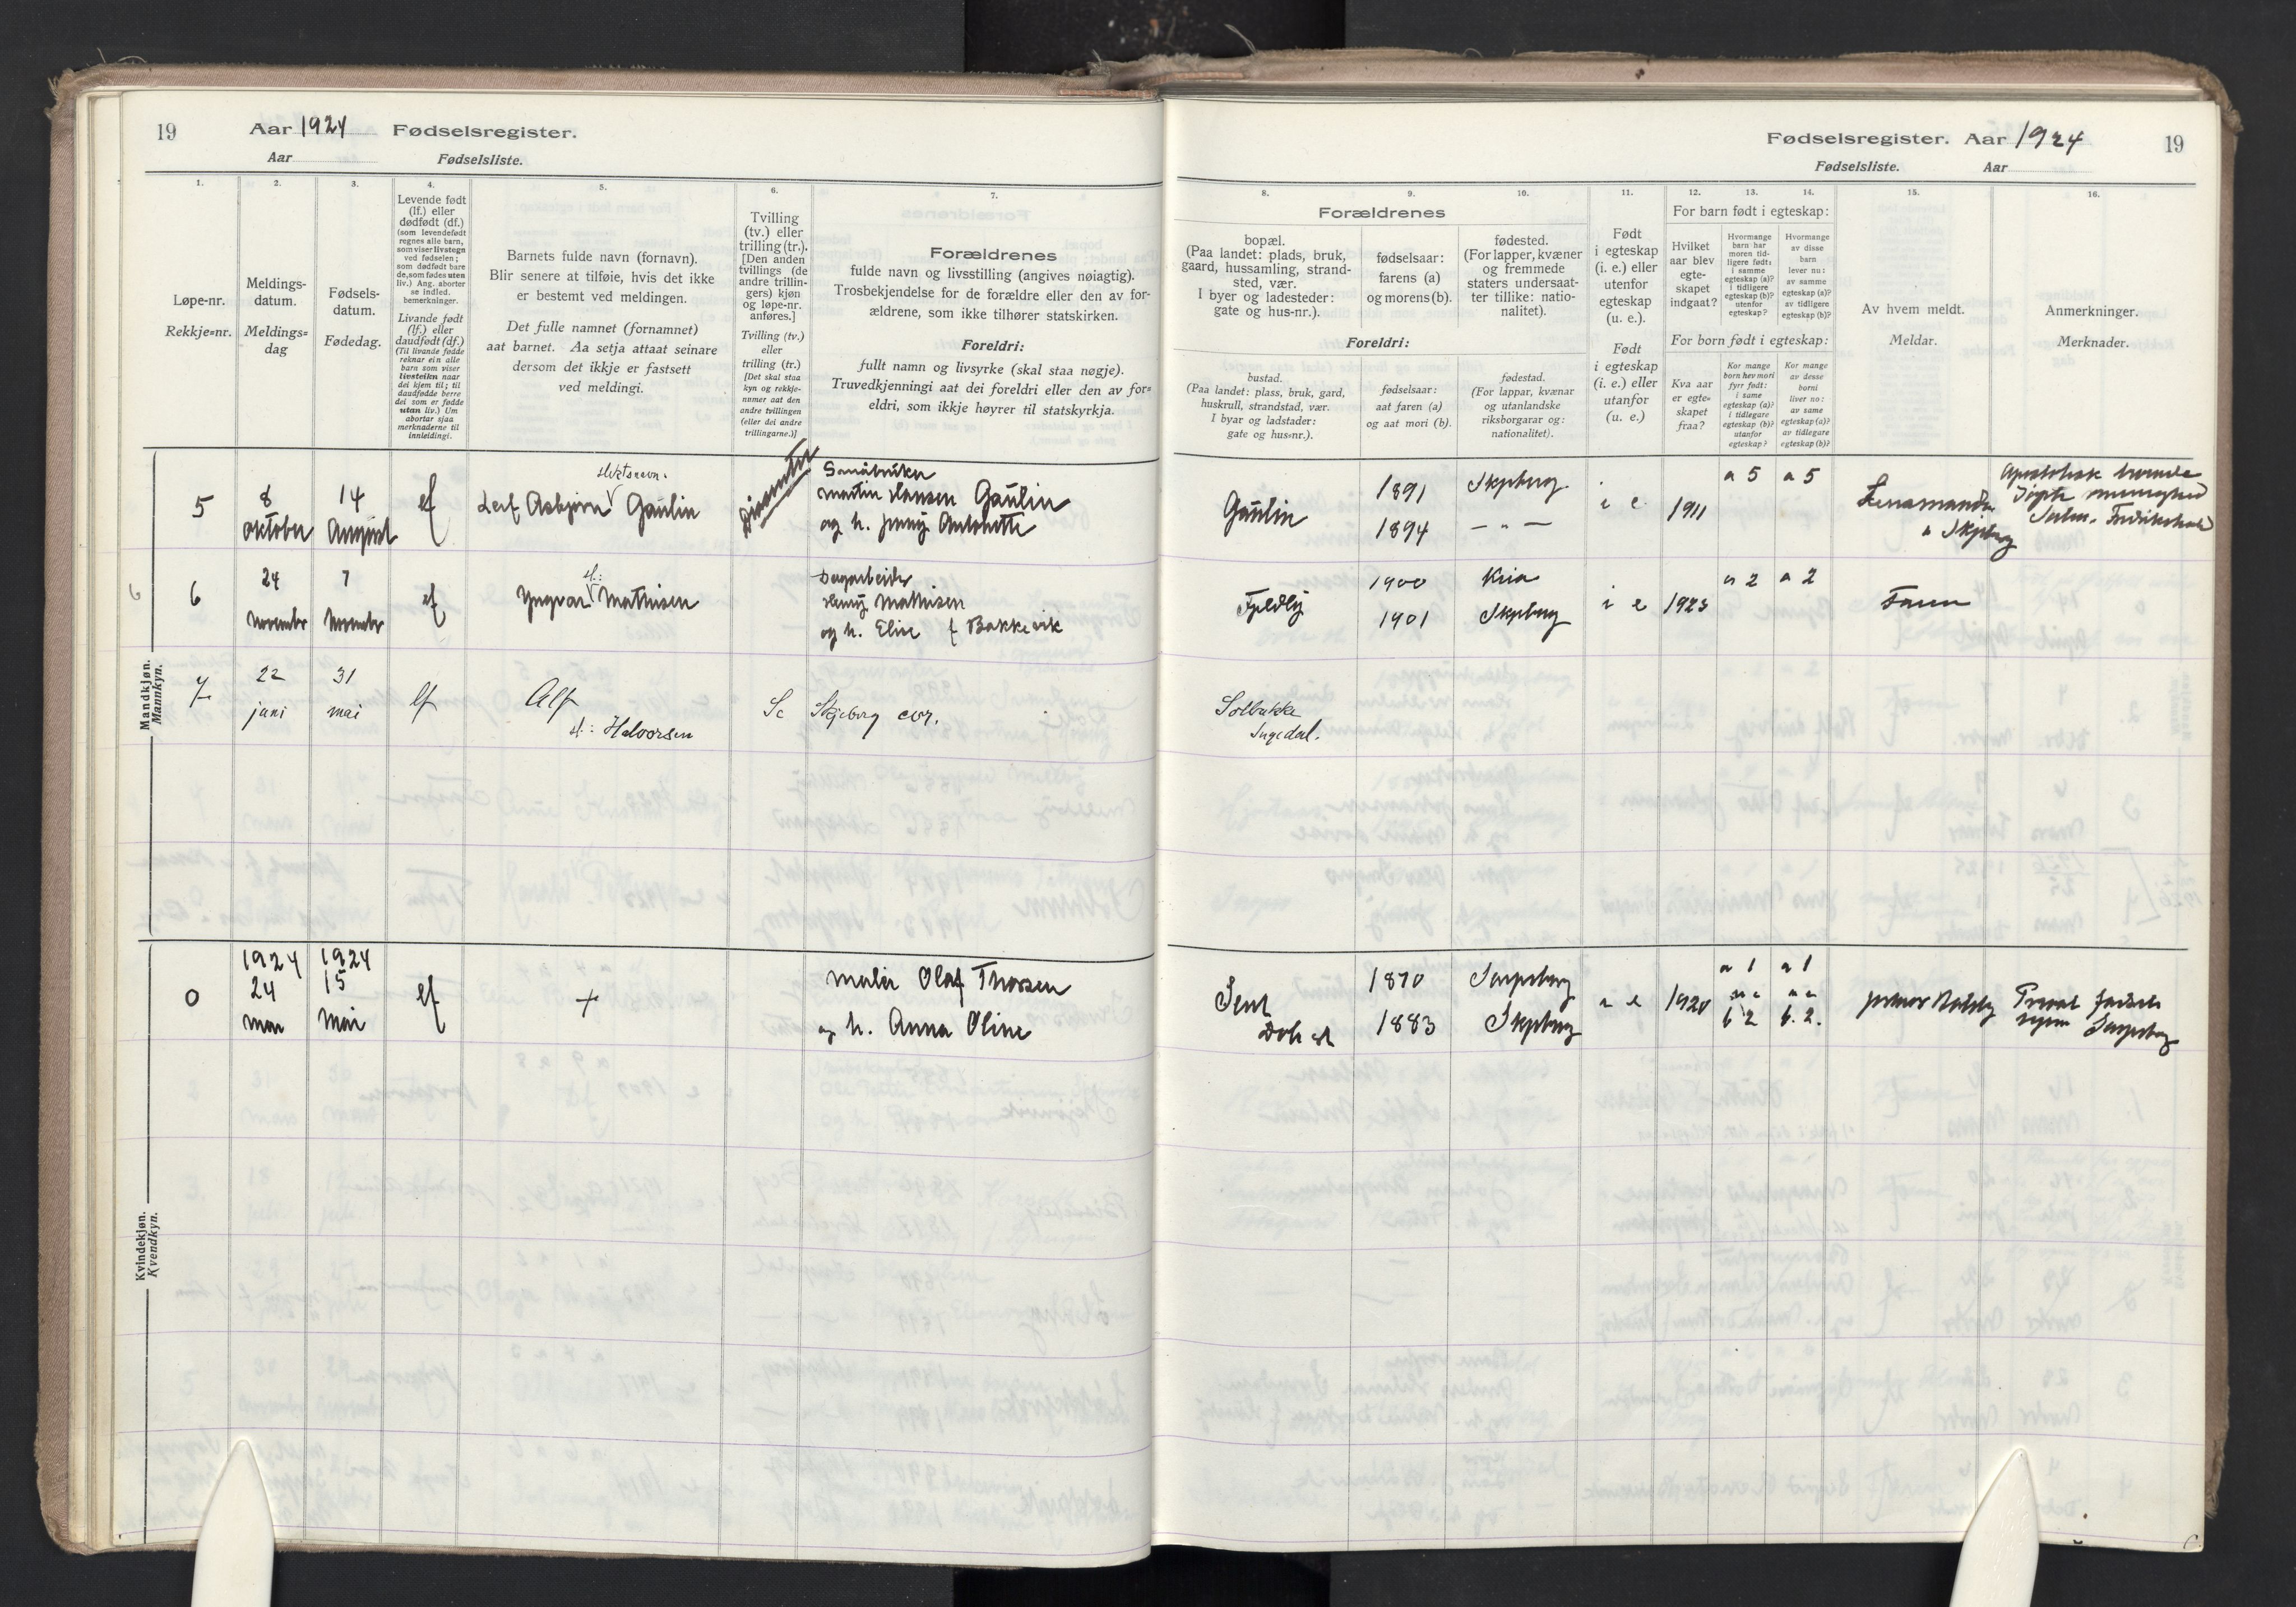 19
Aar 1924 Fødselsregister.
Aar Fødselsliste.
1.
2.
3.
4.
5.
6.
7.
Løpe-nr.
Rekkje=nr.
Meldings-
datum.
Meldings=
dag
Fødsels-
datum.
Fødedag.
Levende født
(lf.) eller
dødfødt (df.)
(som levendefødt
regnes alle barn,
som viser livstegn
ved fødselen;
som dødfødt bare
de, som fødes uten
liv.) Ang. aborter
se indled.
bemerkninger.
Livande født
(lf.) eller
daudfødt (df.)
(Til livande fødde
reknar ein alle
barn som viser
livsteikn naar
dei kjem til; til
daudfødde berre
dei som er fødde
utan liv.) Um
abortar sjaa
merknaderne til
innleidingi.
Barnets fulde navn (fornavn).
Blir senere at tilføie, hvis det ikke
er bestemt ved meldingen.
Det fulle namnet (fornamnet)
aat barnet. Aa setja attaat seinare
dersom det ikkje er fastsett
ved meldingi.
Tvilling
(tv.) eller
trilling (tr.).
[Den anden
tvillings (de
andre trillin-
gers) kjøn
og løpe-nr.
anføres.]
Tvilling (tv.)
eller
trilling (tr.)
[Det skal staa
kyn og rekkje-
numer aat den
andre tvillingen
(eller dei andre
trillingarne.)]
Forældrenes
fulde navn og livsstilling (angives nøiagtig).
Trosbekjendelse for de forældre eller den av for-
ældrene, som ikke tilhører statskirken.
Foreldri:
fullt namn og livsyrke (skal staa nøgje).
Truvedkjenningi aat dei foreldri eller den av for=
eldri, som ikkje høyrer til statskyrkja.
Mandkjøn.
Mannkyn.
5
8
oktober
14
August
lf
slektsnavn.
Leif Asbjørn Gaulin
Dissenter
Småbruker
Martin Hansen Gaulin
og h. Jenny Antonette
6
6
24
November
7
November
lf
sl:
Yngvar Mathisen
Dagarbeider
Henry Mathisen
og h. Elise f Bakkevik
7
22
juni
31
mai
lf
Alf
sl: Halvorsen
Se Skjeberg
Kvindekjøn.
Kvendkyn.
0
1924
24
mai
1924
15
mai
lf
+
Maler Olaf Thorsen
og h. Anna Oline
Fødselsregister. Aar 1924
19
Fødselsliste. Aar
8.
9.
10.
11.
12.
13.
14.
15.
16.
Forældrenes
bopæl.
(Paa landet: plads, bruk,
gaard, hussamling, strand-
sted, vær.
I byer og ladesteder:
gate og hus-nr.).
fødselsaar:
farens (a)
og morens (b).
fødested.
(For lapper, kvæner
og fremmede
staters undersaat-
ter tillike: natio-
nalitet).
Foreldri:
bustad.
(Paa landet: plass, bruk, gard,
huskrull, strandstad, vær.
I byar og ladstader:
gate og hus=nr.).
fødselsaar:
aat faren (a)
og aat mori (b).
fødestad.
(For lappar, kvænar
og utanlandske
riksborgarar og:
nationalitet).
Født
i egteskap
(i. e.) eller
utenfor
egteskap
(u. e.).
Født
i egteskap
(i. e.) eller
utanfor
(u. e.)
For barn født i egteskap:
Hvilket
aar blev
egte-
skapet
indgaat?
Hvormange
barn har
moren tid-
ligere født:
i samme
egteskap (a)?
i tidligere
egteskap (b)?
utenfor
egteskap?
Hvormange
av disse
barn
lever nu:
av samme
egteskap (a)?
av tidligere
egteskap (b)?
For born født i egteskap:
Kva aar
er egte=
skapet
fraa?
Kor mange
born hev mori
fyrr født:
i same
egteskap (a)?
i tidlegare
egteskap (b)?
utanfor
egteskap?
Kor mange
av desse
borni
liver no:
av same
egteskap (a)?
av tidlegare
egteskap (b)?
Av hvem meldt.
Meldar.
Anmerkninger.
Merknader.
Gaulin
1891
1894
Skjeberg
— " —
i e
1911
a 5
a 5
Lensmanden
i Skjeberg
Fjeldly
1900
1901
Kria
Skjeberg
i e
1923
a 2
a 2
Faren
Solbakke
Ingedal.
1870
1883
Sarpsborg
Skjeberg
i e
1920
a 1
b 2
a 1
b. 2.
Sarpsborg